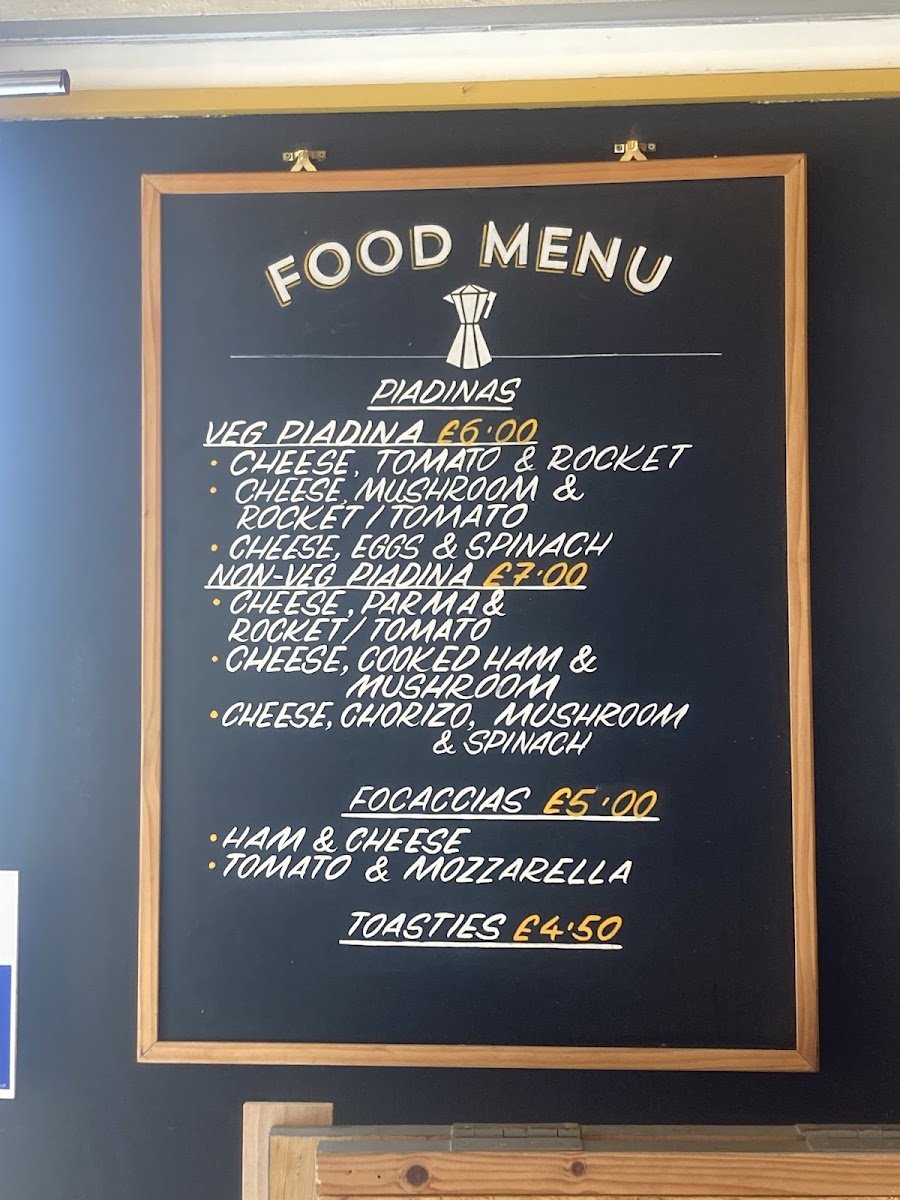 FOOD MENU
PIADINAS
VEG PIADINA £6.00
• CHEESE, TOMATO & ROCKET
• CHEESE, MUSHROOM &
ROCKET / TOMATO
• CHEESE, EGGS & SPINACH
NON-VEG PIADINA £7.00
• CHEESE, PARMA &
ROCKET / TOMATO
• CHEESE, COOKED HAM &
MUSHROOM
• CHEESE, CHORIZO, MUSHROOM
& SPINACH
FOCACCIAS £5.00
• HAM & CHEESE
• TOMATO & MOZZARELLA
TOASTIES £4.50